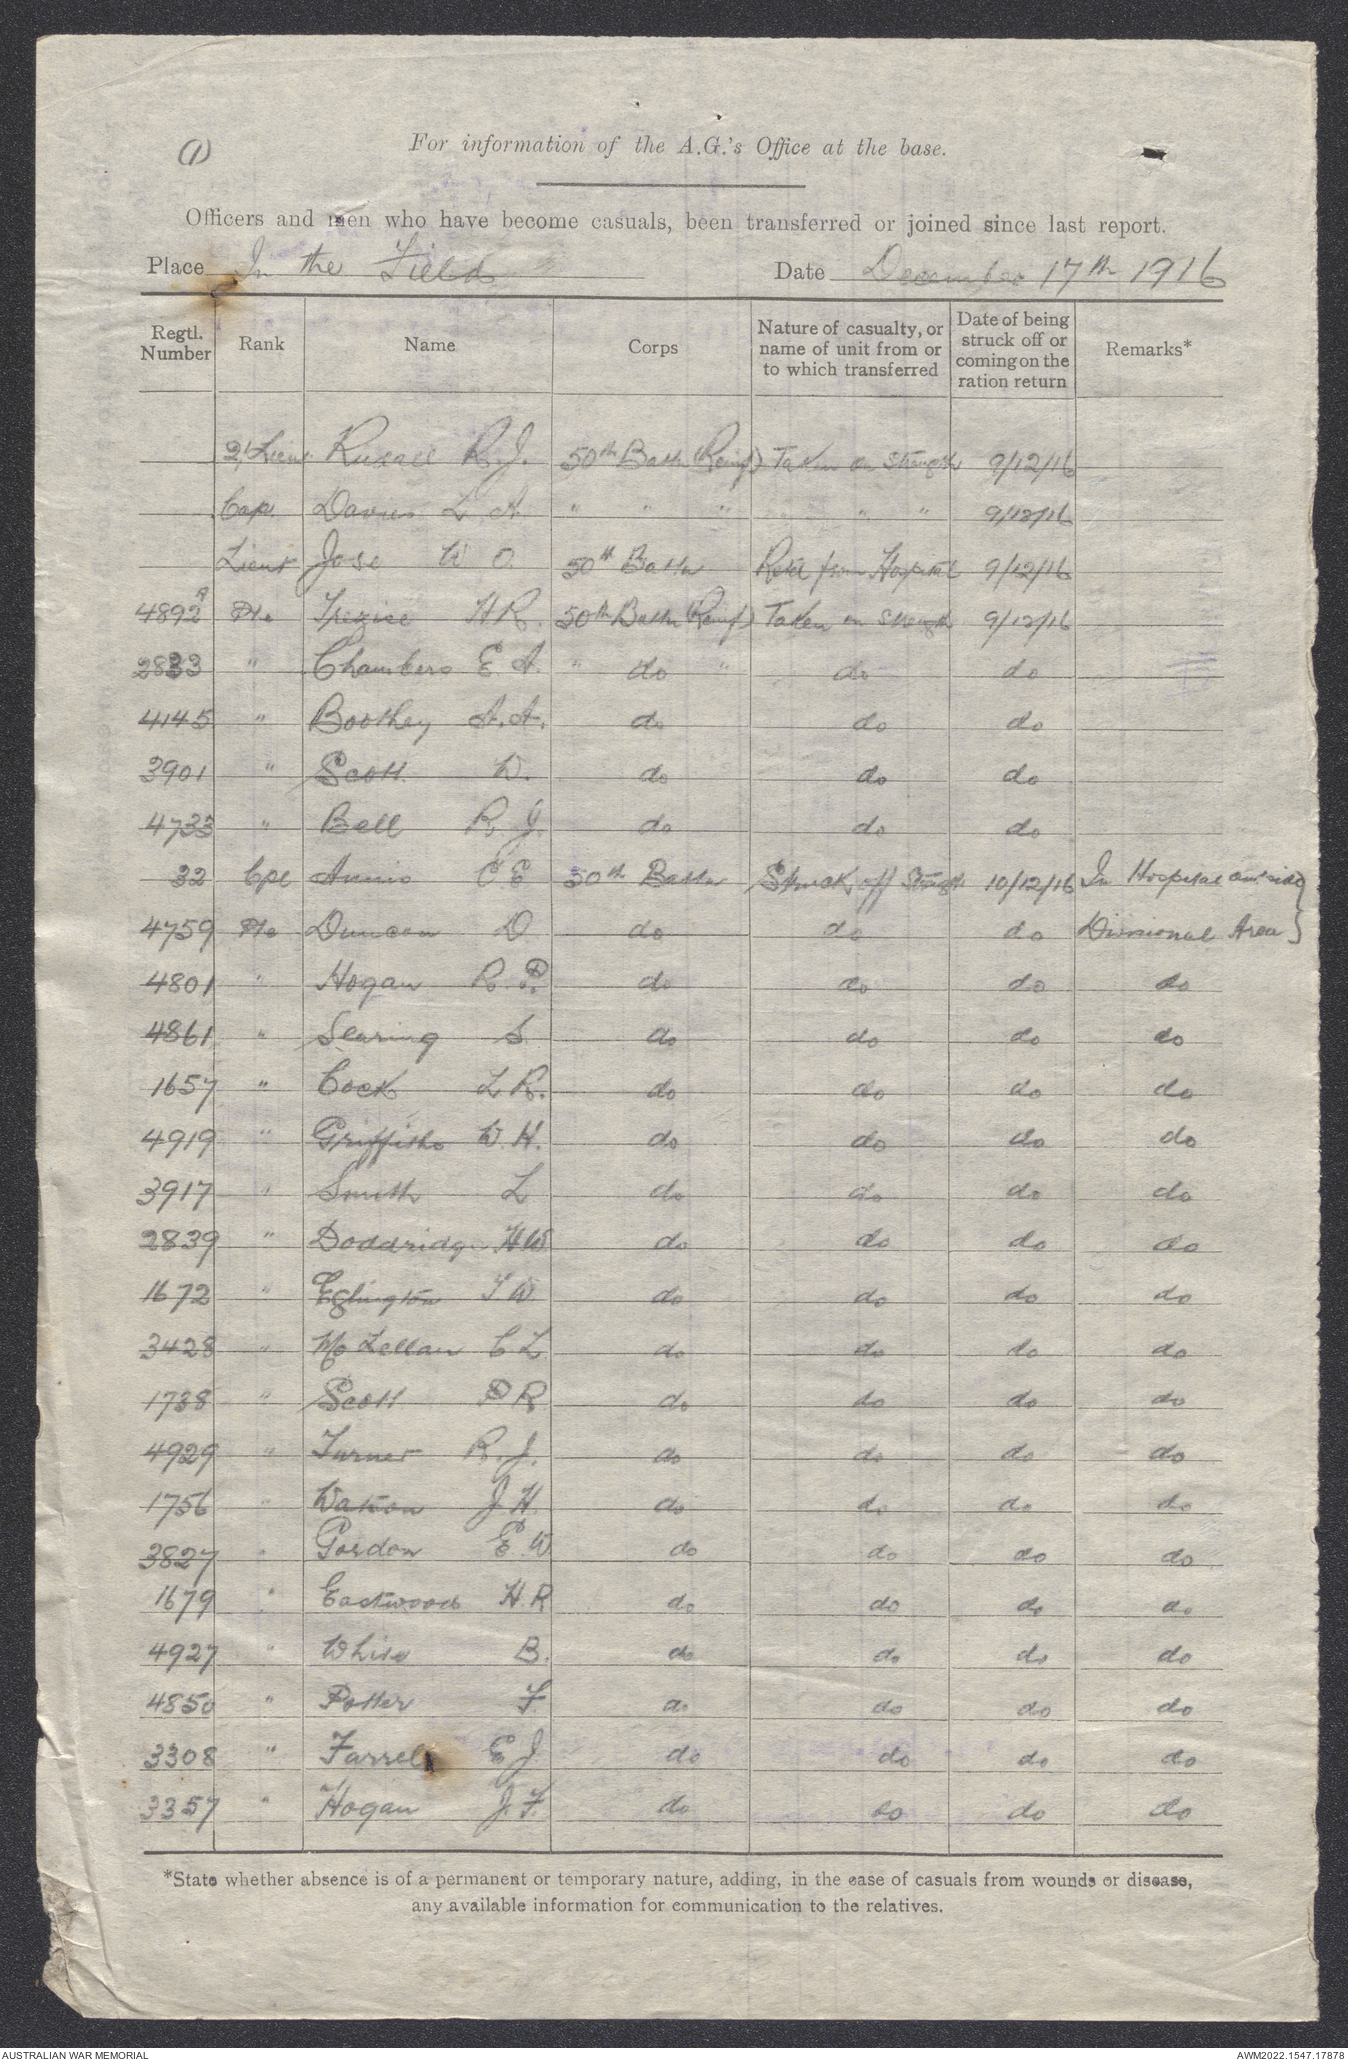 (1)
For information of the A.G.'s Office at the base.
Officers and men who have become casuals, been transferred or joined since last report.
Place In the Field Date December 17th 1916
Regtl. Number Rank Name Corps Nature of casualty, or name of unit from or to which transferred Date of being struck off or coming on the ration return Remarks*
2/Lieut R. J. 50th Battn (Reinf) Taken on Strength 9/12/16
Cap. Davies L A " " " " " 9/12/16
Lieut Jose W O. 50th Battn Retd from Hospital 9/12/16
4892A Pte Trezise H R. 50th Battn (Reinf) Taken on Strength 9/12/16
2833 " Chambers E A. " do " do do
4145 " Boothey A. A. do do do
3901 " Scott W. do do do
4733 " Bell R J. do do do
32 Cpl Annis C E 50th Battn Struck off Strength 10/12/16 In Hospital outside
4759 Pte Duncan D do do do Divisional Area }
4801 " Hogan R. P. do do do do
4861 " Searing S do do do do
1657 " Cock L R. do do do do
4919 " Griffiths W H. do do do do
3917 " Smith L do do do do
2839 " Doddridge H W do do do do
1672 " Eglington T W do do do do
3428 " Mc Lellan C L do do do do
1738 " Scott P R do do do do
4929 " Turner R. J. do do do do
1756 " Watson J H. do do do do
3827 " Gordon E. W do do do do
1679 " Eastwood H. R do do do do
4927 " White B. do do do do
4850 " Potter F. do do do do
3308 " Farrell E J do do do do
3357 " Hogan J. F. do do do do
*State whether absence is of a permanent or temporary nature, adding, in the case of casuals from wounds or disease,
any available information for communication to the relatives.
AUSTRALIAN WAR MEMORIAL AWM2022.1547.17878